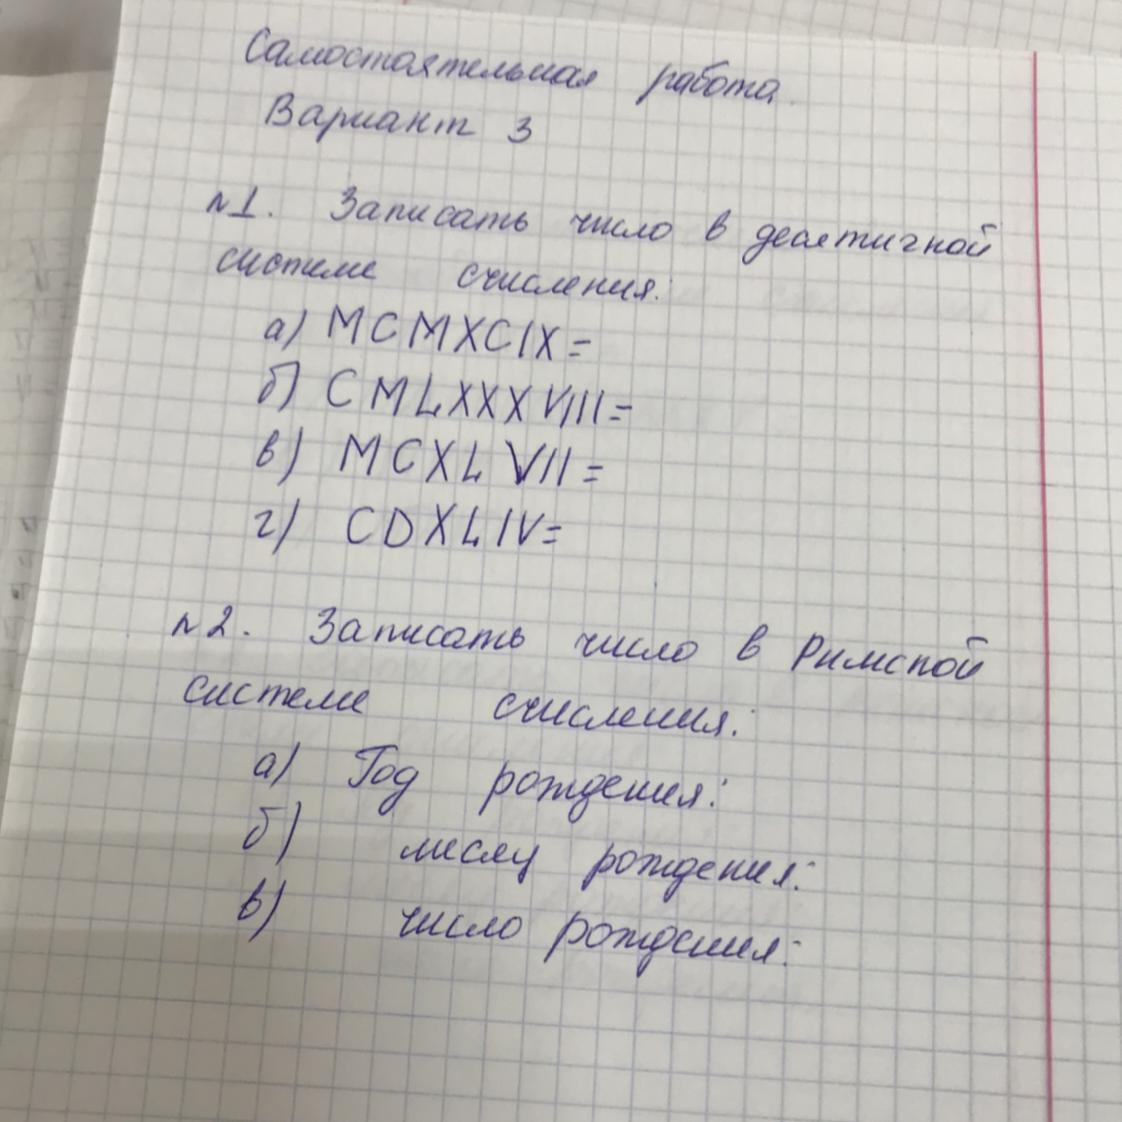 Самостоятельная работа.
Вариант 3
№1. Записать число в десятичной
системе счисления:
а) MCMXCIX=
б) CMLXXXVIII=
в) MCXLVII=
г) CDXLIV=
№2. Записать число в Римской
системе счисления:
а) Год рождения:
б) месяц рождения:
в) число рождения: